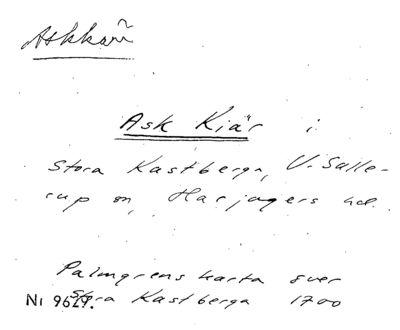 Askkärr
Ask Kiär i
Stora Kastberga, V. Salle-
rup sn, Harjagers hd.
Palmgrens karta över
Stora Kastberga 1700
Nr 9629.